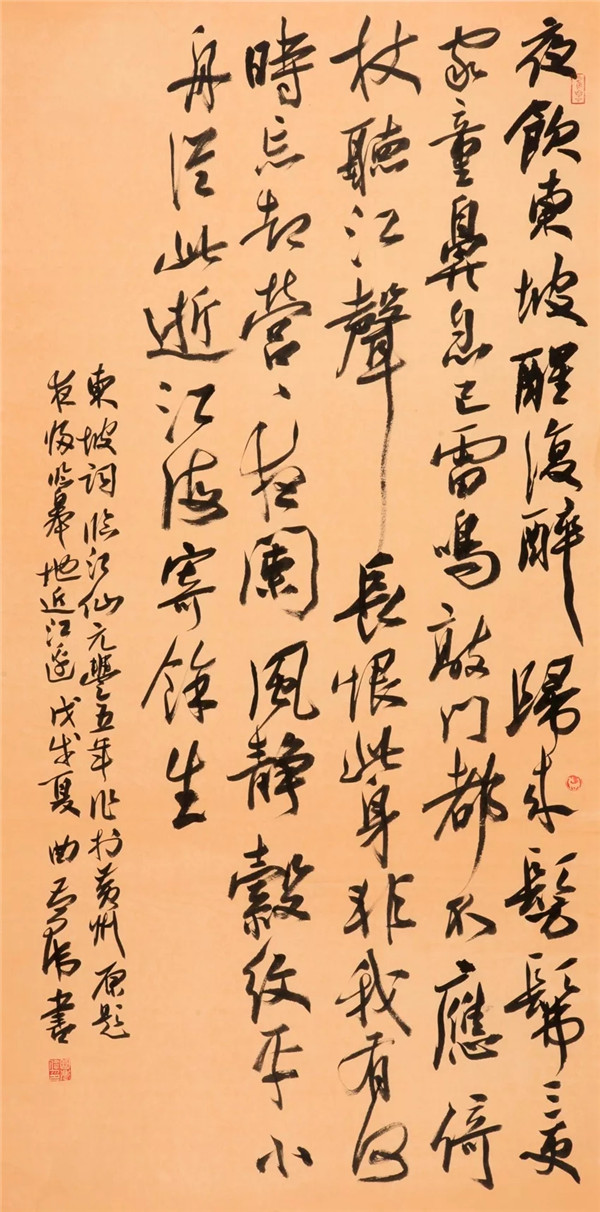 夜飲東坡醒復醉 歸来髣髴三更
家童鼻息已雷鳴敲门都不應倚
杖聽江聲 長恨此身非我有何
時忘却營々夜闌風静縠紋平小
舟從此逝江海寄餘生
東坡詞臨江仙元豐五年作於黄州 原題
夜歸臨皋地近江邊 戊戌夏 曲 書